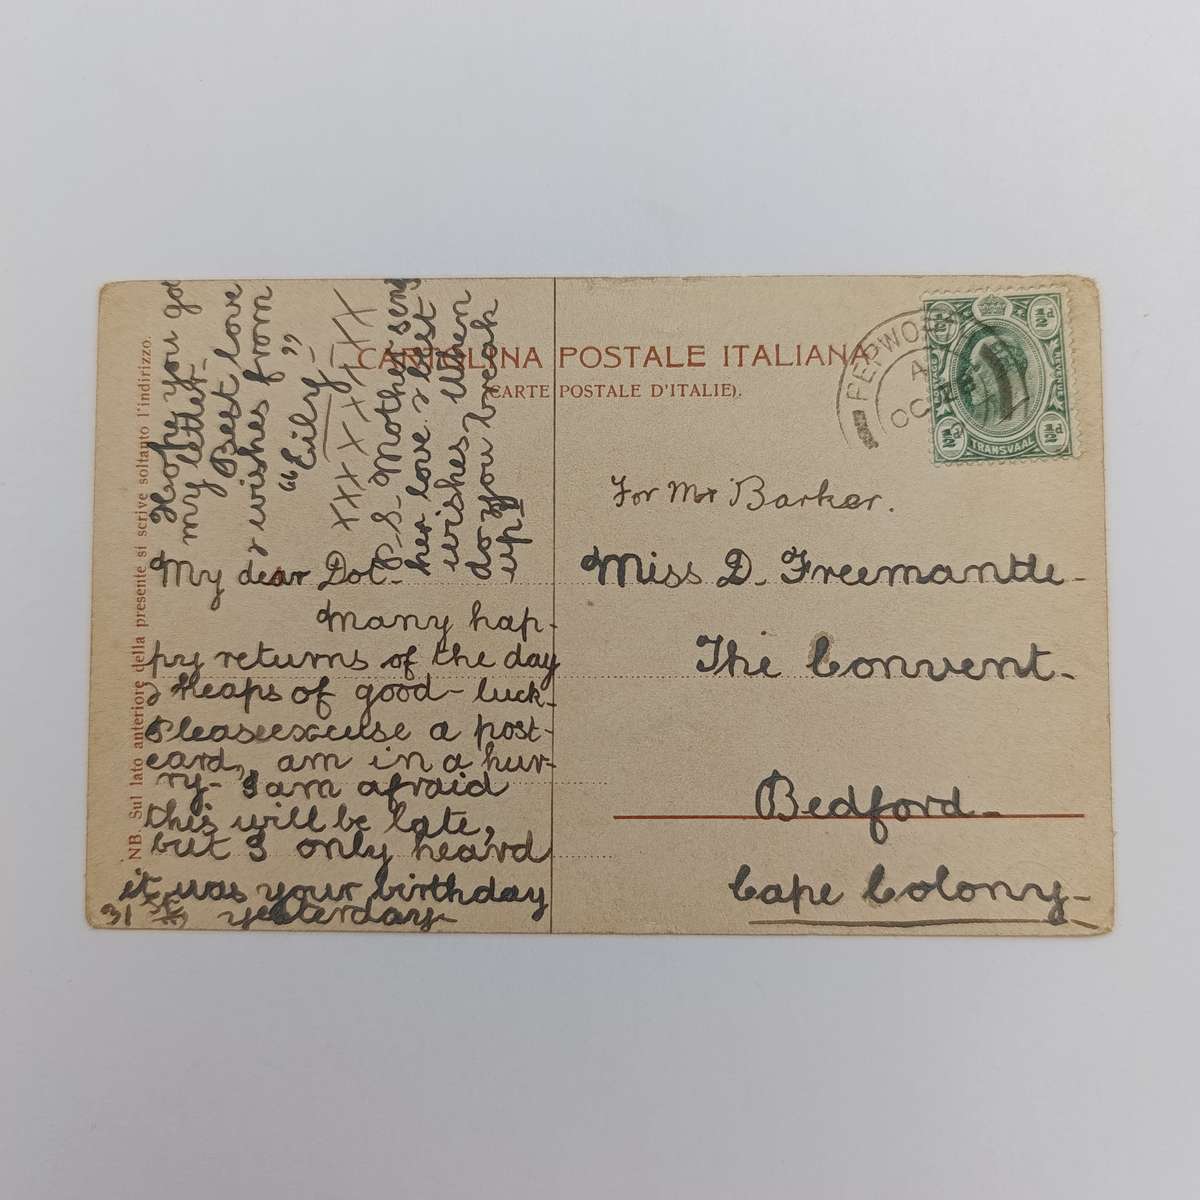 CARTOLINA POSTALE ITALIANA
(CARTE POSTALE D'ITALIE).
NB. Sul lato anteriore della presente si scrive soltanto l'indirizzo.
My dear Dot-
Many hap-
py returns of the day
& heaps of good-luck-
Please excuse a post-
card, am in a hur-
ry- I am afraid
this will be late,
but I only heard
it was your birthday
yesterday-
31
Hope you got
my letter-
Best love
& wishes from
"Eily"-
XXX X X X X X
P.S- Mother send
her love & best
wishes. When
do you break
up
For Mr Barker.
Miss D. Freemantle-
The Convent-
Bedford-
Cape Colony-
½d ½d
½d ½d
POSTAGE REVENUE
TRANSVAAL
A
OC